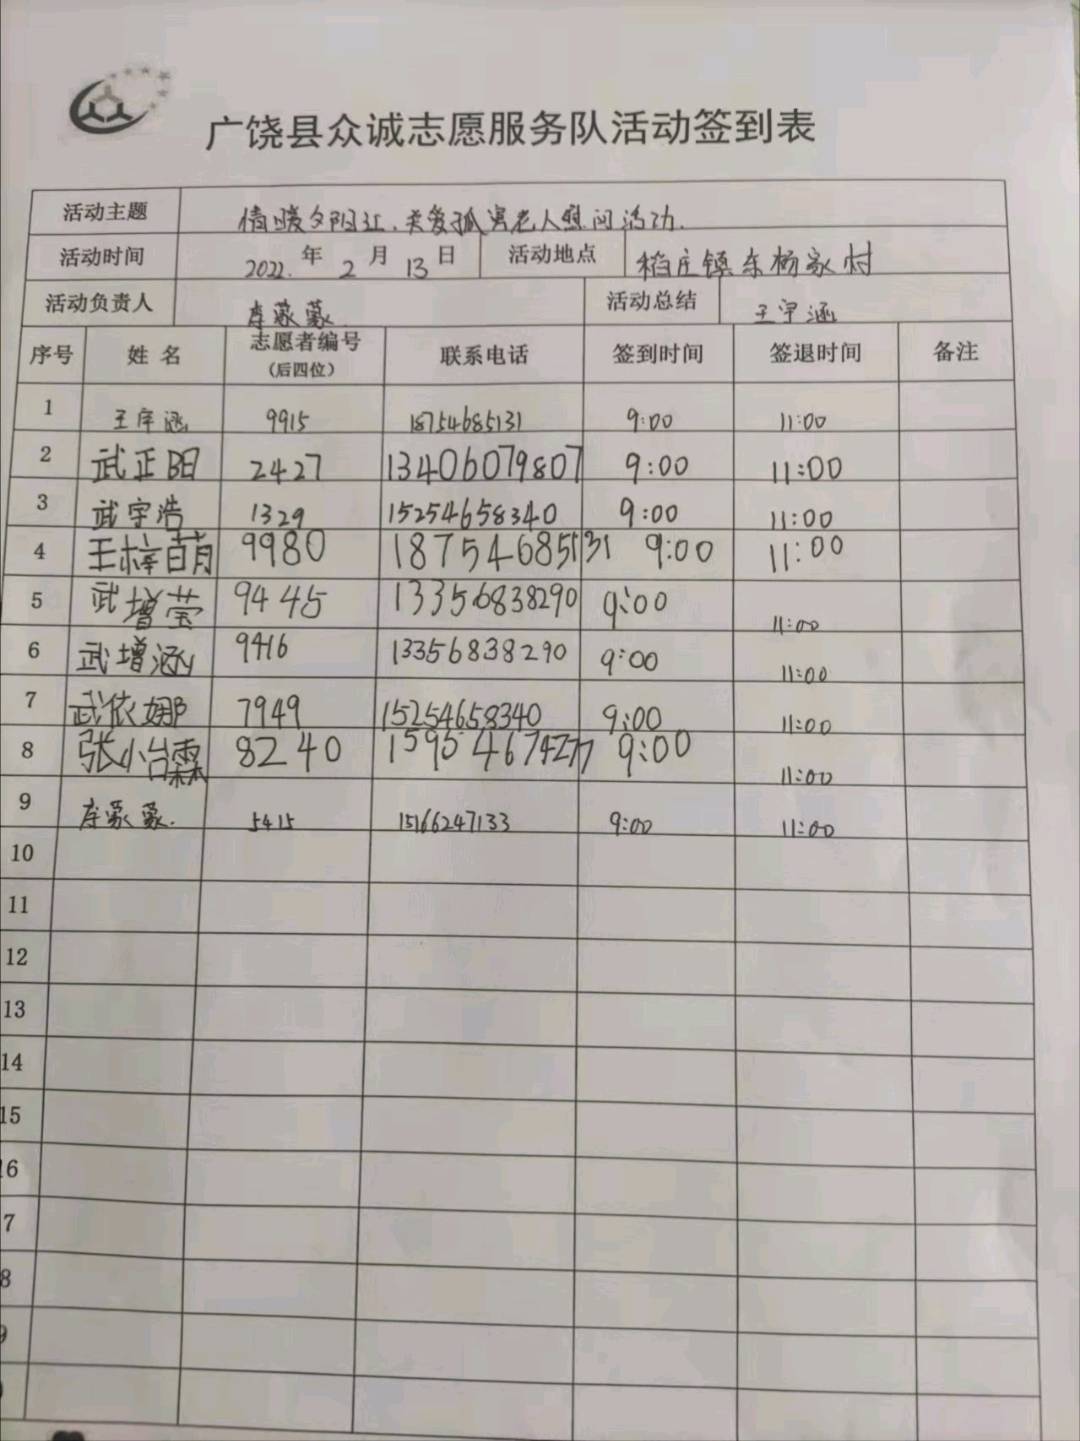 广饶县众诚志愿服务队活动签到表
活动主题 情暖夕阳红.关爱孤寡老人慰问活动.
活动时间 2022.年 2 月 13 日 活动地点 稻庄镇东杨家村
活动负责人 李蒙蒙. 活动总结 王宇涵
序号 姓 名 志愿者编号 (后四位) 联系电话 签到时间 签退时间 备注
1 王宇涵 9915 18754685131 9:00 11:00
2 武正阳 2427 13406079807 9:00 11:00
3 武宇浩 1329 15254658340 9:00 11:00
4 王梓萌 9980 18754685131 9:00 11:00
5 武增莹 9445 13356838290 9:00 11:00
6 武增涵 9416 13356838290 9:00 11:00
7 武依娜 7949 15254658340 9:00 11:00
8 张小霖 8240 15954674277 9:00 11:00
9 李蒙蒙. 5415 15166247133 9:00 11:00
10
11
12
13
14
15
16
7
8
9